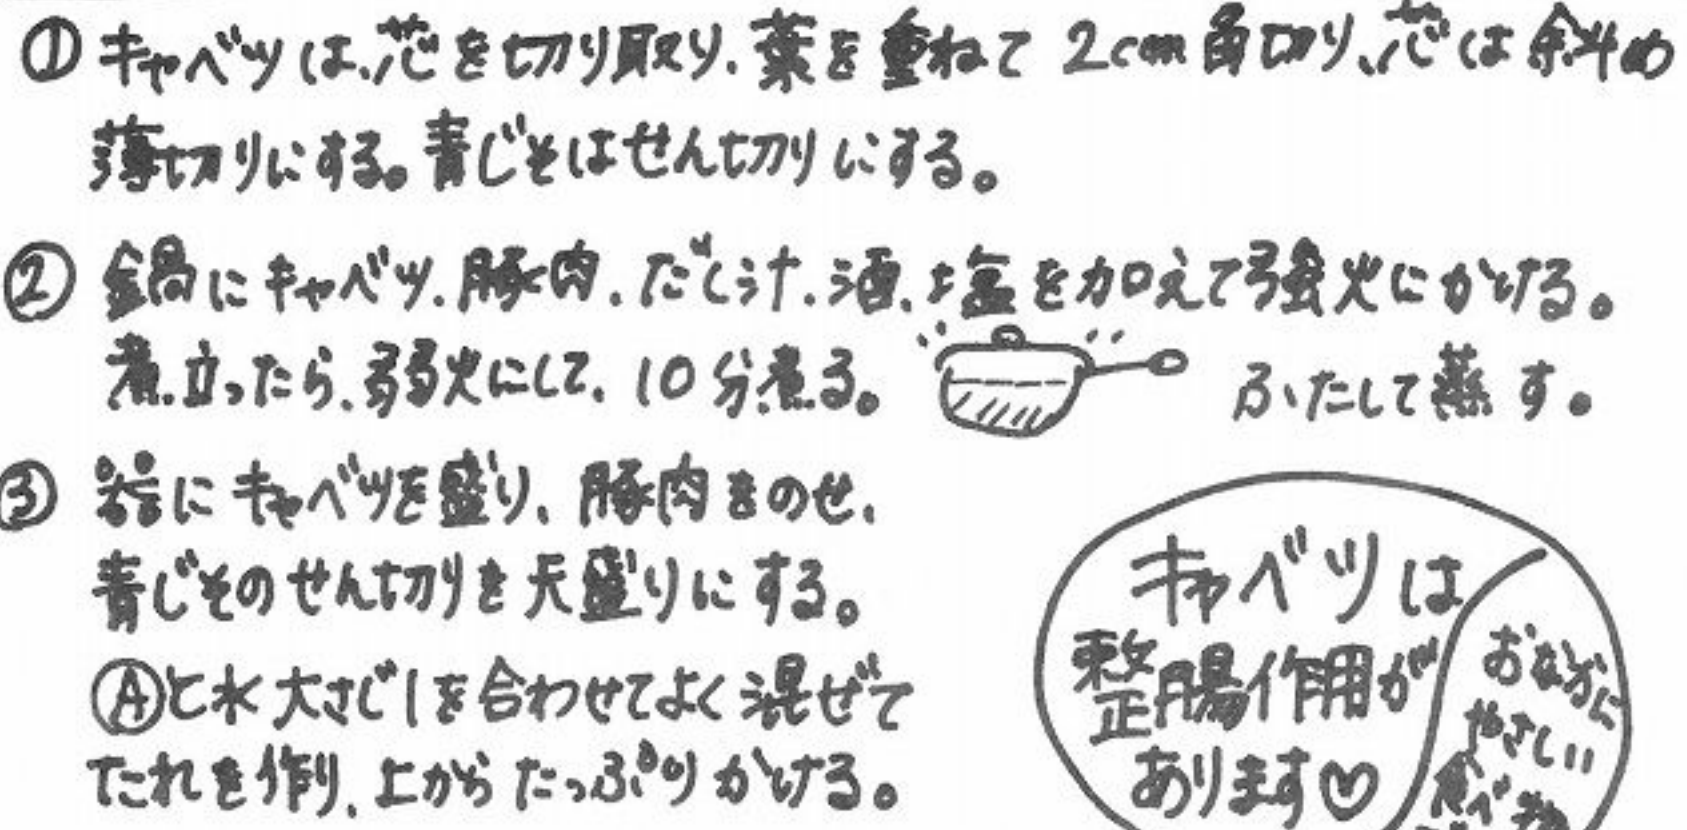 ①キャベツは、芯を切り取り、葉を重ねて2cm角切り、芯は斜め
薄切りにする。青じそはせん切りにする。
②鍋にキャベツ、豚肉、だし汁、酒、塩を加えて強火にかける。
煮立ったら、弱火にして、10分煮る。
ふたして蒸す。
③器にキャベツを盛り、豚肉をのせ、
青じそのせん切りを天盛りにする。
Ⓐと水大さじ1を合わせてよく混ぜて
たれを作り、上からたっぷりかける。
キャベツは
整腸作用が
あります♡
おなかに
やさしい
食べ物